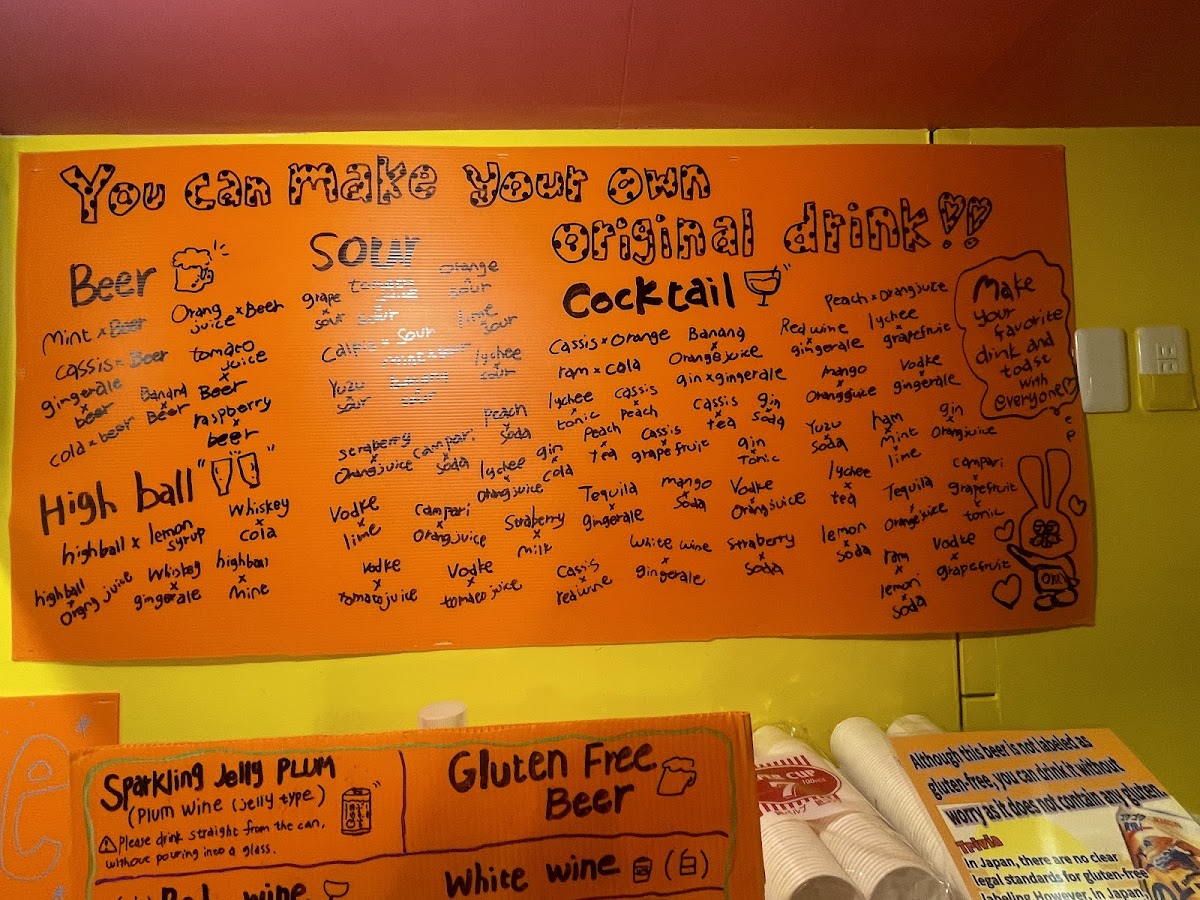 You can make your own
original drink!!
Beer
Mint x Beer
Orang juice x Beer
cassis x Beer
tomato
juice
x
Beer
gingerale
x
beer
Banana
x
Beer
cold x beer
raspberry
x
beer
High ball
highball x lemon
syrup
Whiskey
x
cola
highball
x
Orang juice
Whiskey
x
gingerale
highball
x
Mine
Sour
grape
sour
tomato
sour
orange
sour
lime
sour
Calpis x Sour
Yuzu
sour
banana
sour
lychee
sour
Cocktail
Cassis x Orange
Banana
x
Orangejuice
Red wine
x
gingerale
Peach x Orangjuice
lychee
x
grapefruit
ram x cola
gin x gingerale
mango
x
Orangjuice
vodke
x
gingerale
lychee
x
tonic
cassis
x
peach
cassis
x
tea
gin
x
soda
Yuzu
x
soda
ham
x
Mint
x
lime
gin
x
Orangjuice
straberry
x
Orangjuice
Campari
x
soda
Peach
x
soda
lychee
x
Orangjuice
gin
x
cola
Peach
x
tea
Cassis
x
grapefruit
gin
x
Tonic
lychee
x
tea
Vodke
x
lime
Campari
x
Orangjuice
Straberry
x
milk
Tequila
x
gingerale
mango
x
soda
Vodke
x
Orangjuice
Tequila
x
Orangjuice
campari
x
grapefruit
x
tonic
vodke
x
tomatojuice
Vodke
x
tomato juice
Cassis
x
redwine
White wine
x
gingerale
straberry
x
soda
lemon
x
soda
ram
x
lemon
soda
Vodke
x
grapefruit
Make
your
favorite
drink and
toast
with
everyone
Sparkling Jelly PLUM
(Plum wine (jelly type.)
Please drink straight from the can,
without pouring into a glass.
Gluten Free
Beer
Red wine
White wine (白)
CUP
7
100
Although this beer is not labeled as
gluten-free, you can drink it without
worry as it does not contain any gluten.
In Japan, there are no clear
legal standards for gluten-free
labeling. However, in Japan,